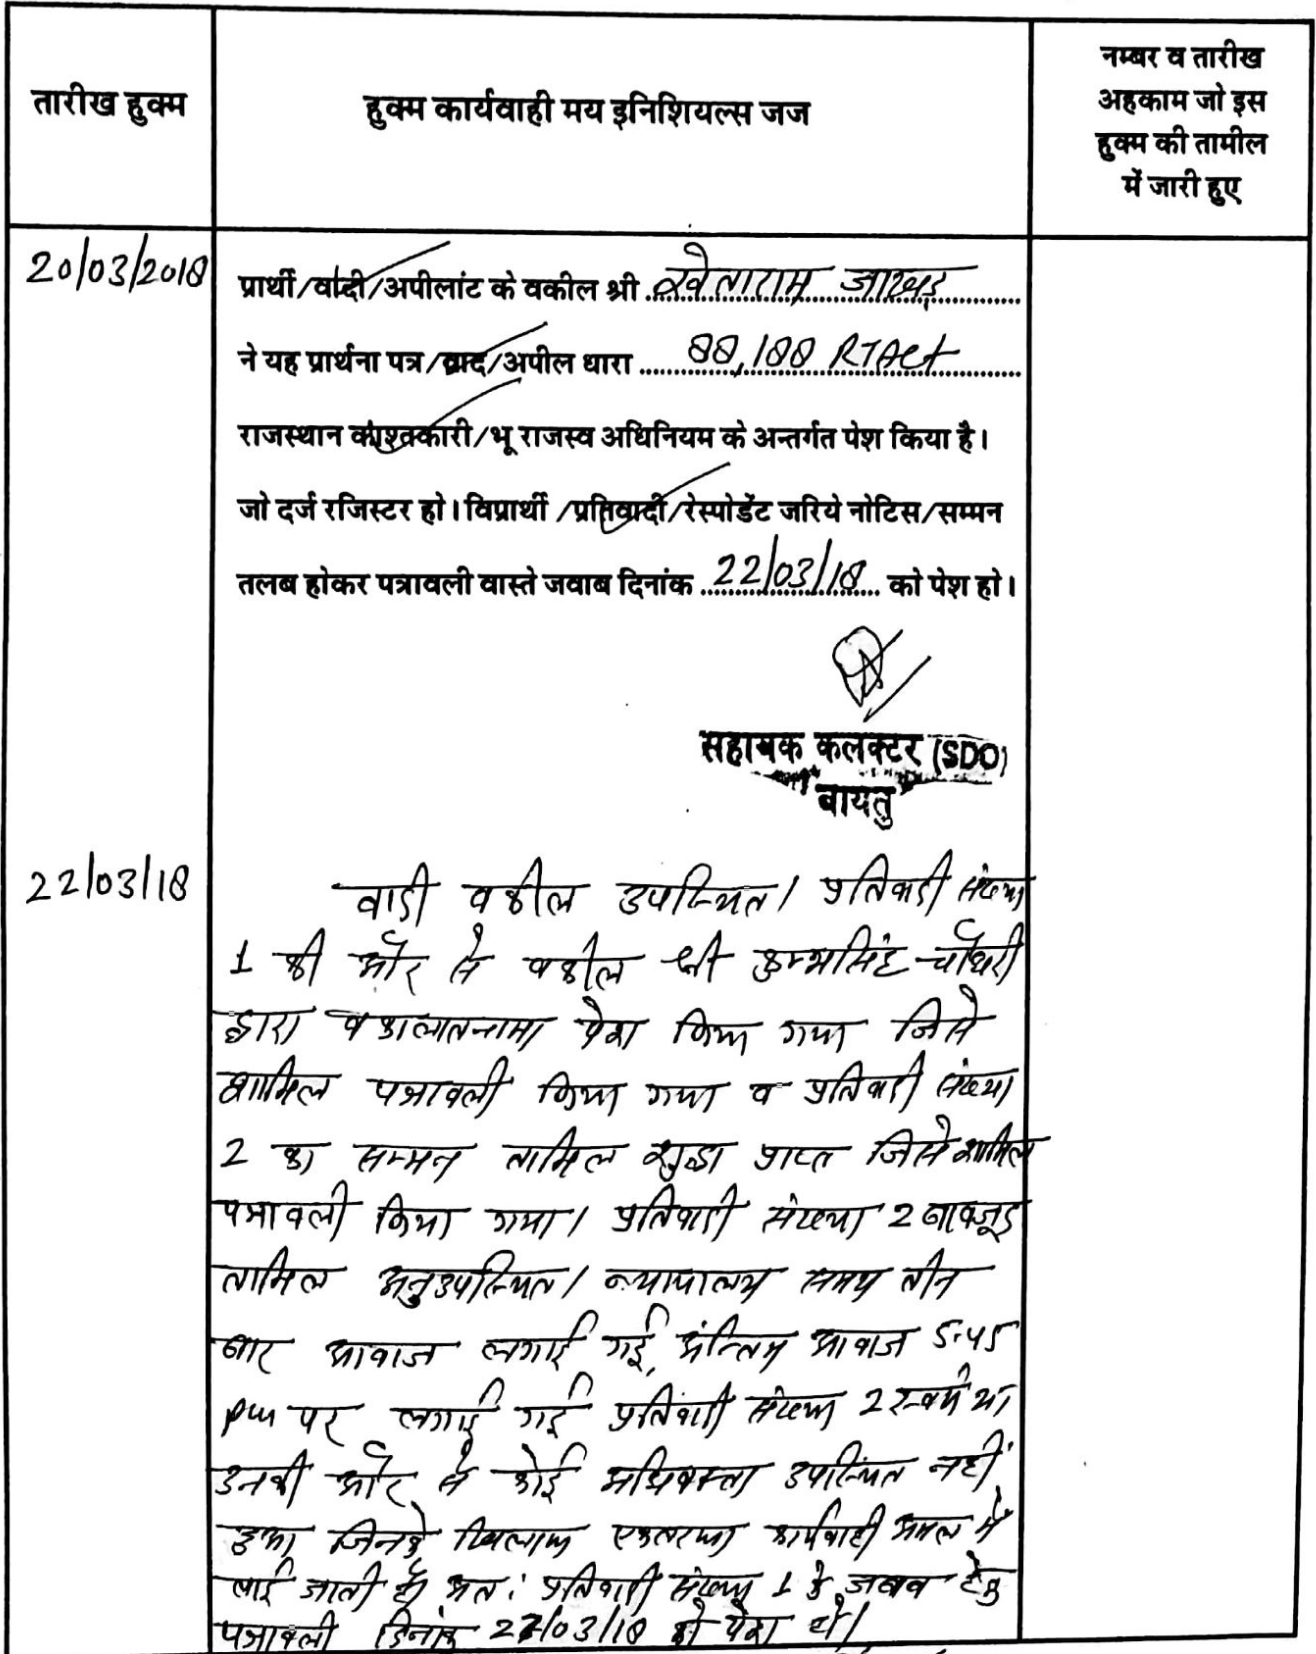 तारीख हुक्म
हुक्म कार्यवाही मय इनिशियल्स जज
नम्बर व तारीख
अहकाम जो इस
हुक्म की तामील
में जारी हुए
20/03/2018
प्रार्थी/वादी/अपीलांट के वकील श्री खेताराम जाखड़
ने यह प्रार्थना पत्र/वाद/अपील धारा 88,188 RTAct
राजस्थान काश्तकारी/भू राजस्व अधिनियम के अन्तर्गत पेश किया है।
जो दर्ज रजिस्टर हो। विप्रार्थी/प्रतिवादी/रेस्पोडेंट जरिये नोटिस/सम्मन
तलब होकर पत्रावली वास्ते जवाब दिनांक 22/03/18 को पेश हो।
सहायक कलक्टर (SDO)
बायतु
22/03/18
वादी वकील उपस्थित। प्रतिवादी संख्या
1 की ओर से वकील श्री कुम्भासिंह चौधरी
द्वारा वकालातनामा पेश किया गया जिसे
शामिल पत्रावली किया गया व प्रतिवादी संख्या
2 का सम्मन तामिल शुदा प्राप्त जिसे शामिल
पत्रावली किया गया। प्रतिवादी संख्या 2 बावजूद
तामिल अनुउपस्थित। न्यायालय समय तीन
बार आवाज लगाई गई, अन्तिम आवाज 5-45
pm पर लगाई गई प्रतिवादी संख्या 2 स्वयं या
उनकी ओर से कोई अधिवक्ता उपस्थित नहीं
हुआ जिनके खिलाफ एकतरफा कार्यवाही अमल में
लाई जाती है अतः प्रतिवादी संख्या 1 के जबाव हेतु
पत्रावली दिनांक 27/03/18 को पेश हो।